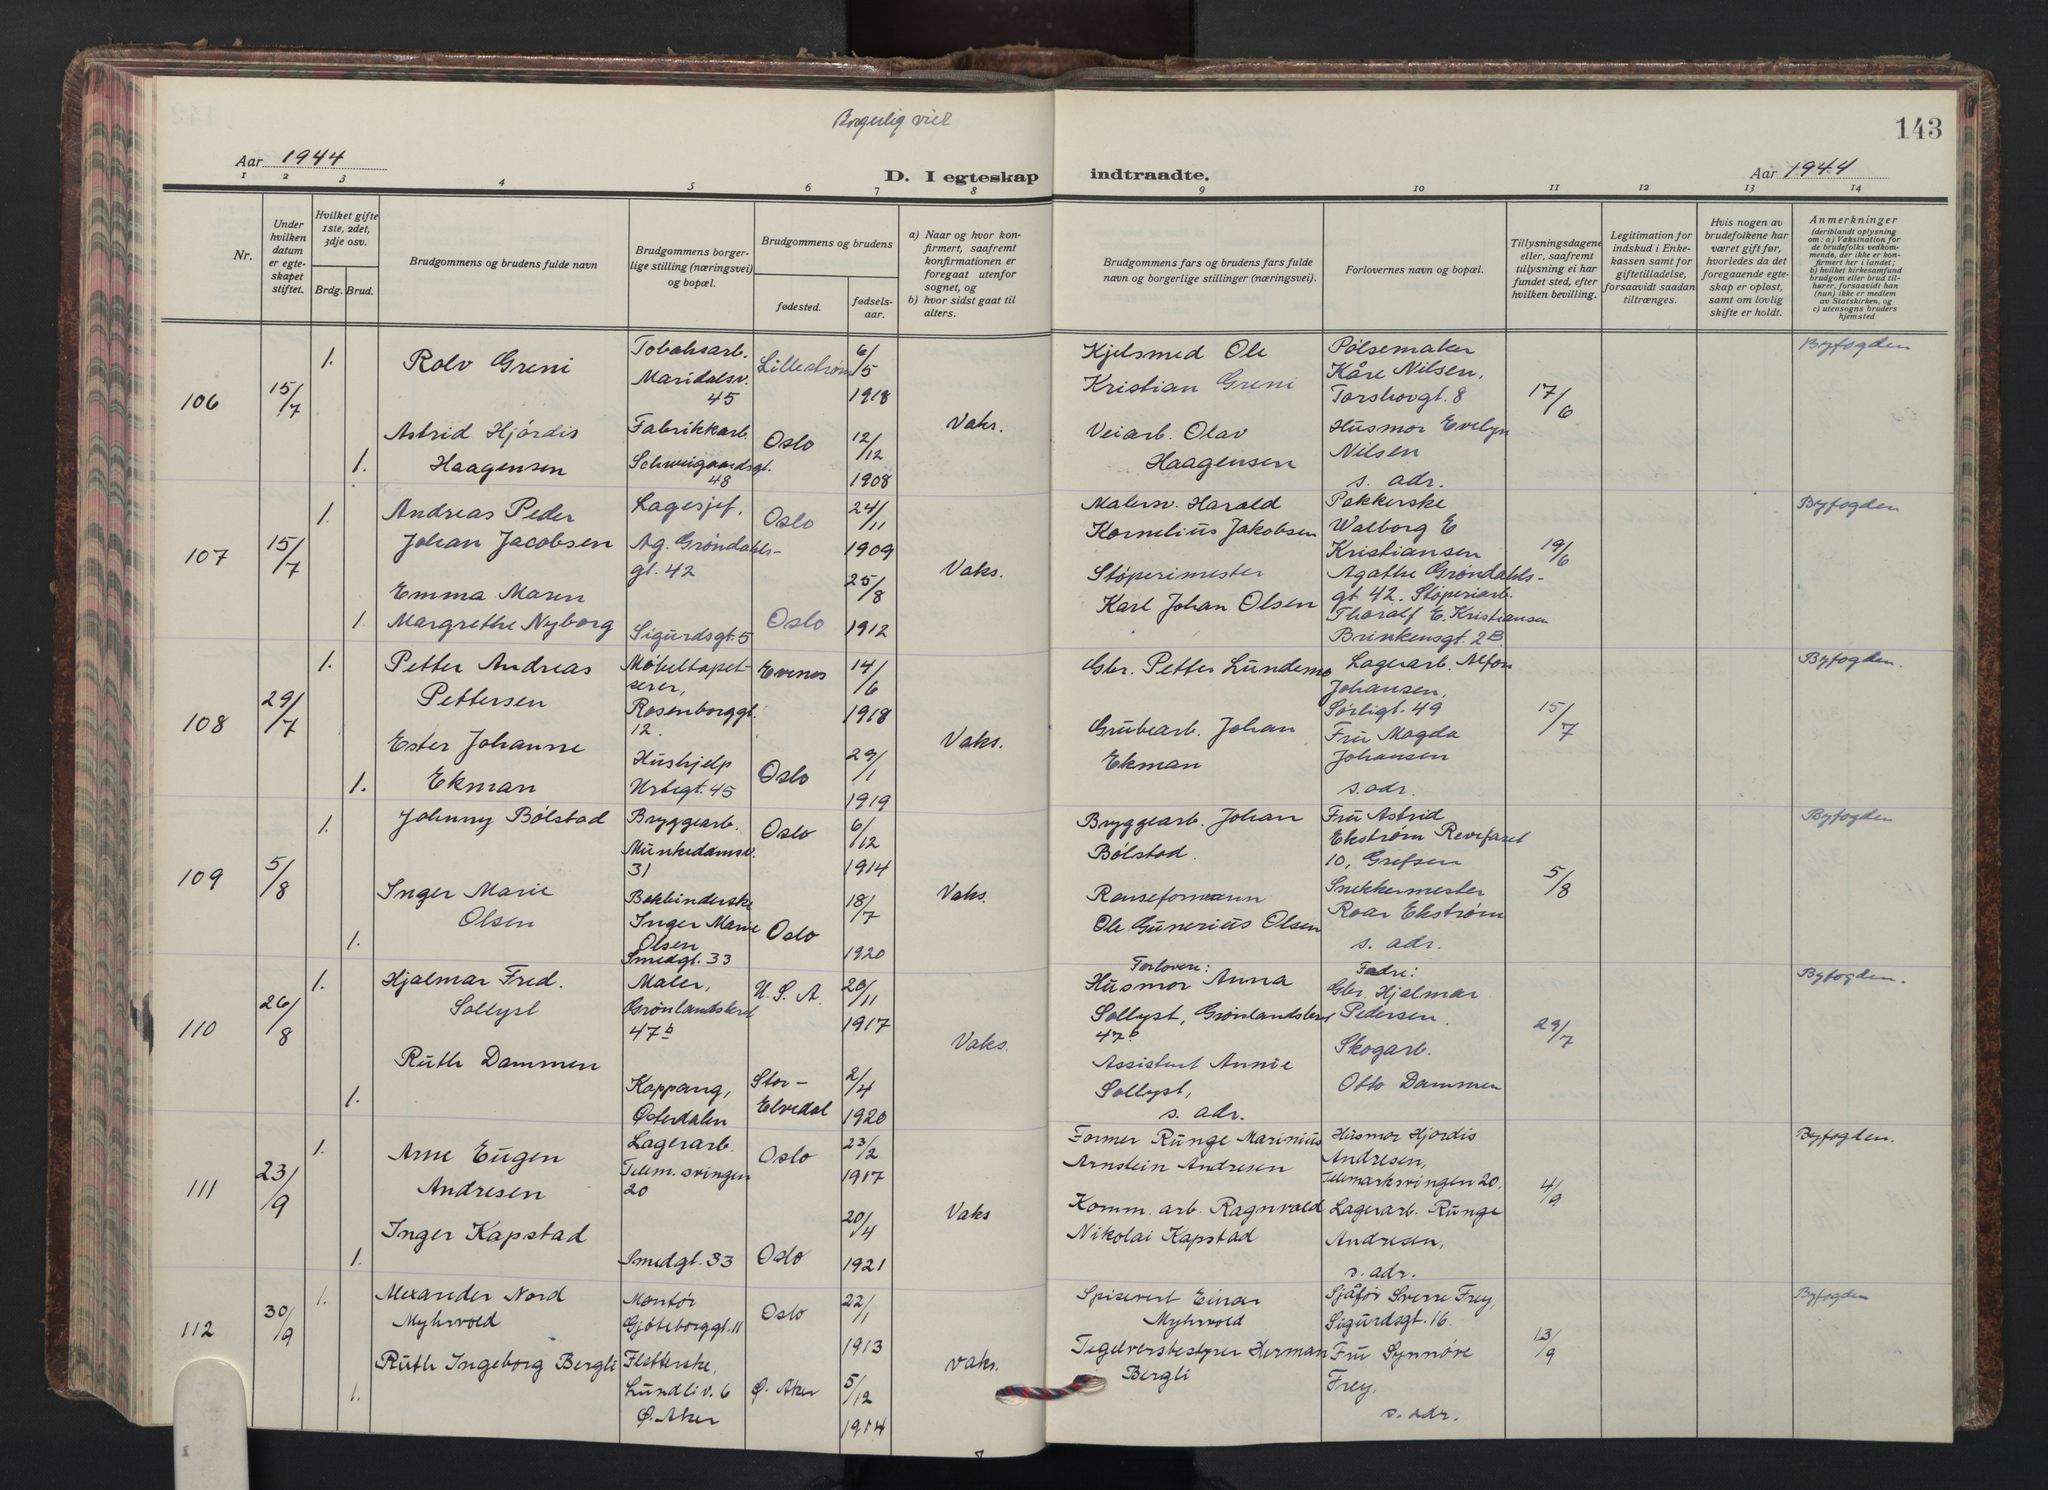 Borgerlig viet
143
Aar 1944
D. I egteskap indtraadte.
Aar 1944
1 2 3 4 5 6 7 8 9 10 11 12 13 14
Nr.
Under hvilken datum er egteskapet stiftet.
Hvilket gifte 1ste, 2det, 3dje osv.
Brdg. Brud.
Brudgommens og brudens fulde navn
Brudgommens borgerlige stilling (næringsvei) og bopæl.
Brudgommens og brudens
fødested.
fødselsaar.
a) Naar og hvor konfirmert, saafremt konfirmationen er foregaat utenfor sognet, og
b) hvor sidst gaat til alters.
Brudgommens fars og brudens fars fulde navn og borgerlige stillinger (næringsvei).
Forlovernes navn og bopæl.
Tillysningsdagene eller, saafremt tillysning ei har fundet sted, efter hvilken bevilling.
Legitimation for indskud i Enkekassen samt for giftetilladelse, forsaavidt saadan tiltrænges.
Hvis nogen av brudefolkene har været gift før, hvorledes da det foregaaende egteskap er opløst, samt om lovlig skifte er holdt.
Anmerkninger
(deriblandt oplysning om: a) Vaksination for de brudefolks vedkommende, der ikke er konfirmert her i landet; b) hvilket kirkesamfund brudgom eller brud tilhører, forsaavidt han (hun) ikke er medlem av Statskirken, og c) utensogns bruders hjemsted
106
15/7
1.
Rolv Greni
Tobaksarb.
Maridalsv.
45
Lillestrøm
6/5
1918
Kjelsmed Ole
Kristian Greni
Pølsemaker
Kåre Nilsen,
Torshovgt. 8
17/6
Byfogden
1.
Astrid Hjördis
Haagensen
Fabrikkarb.
Schweigaardsgt.
48
Oslo
12/12
1908
Vaks.
Veiarb. Olav
Haagensen
Husmor Evelyn
Nilsen
s. adr.
107
15/7
1.
Andreas Peder
Johan Jacobsen
Lagesjef,
Ag. Grøndahls-
gt. 42
Oslo
24/11
1909
Vaks.
Malerm. Harald
Kornelius Jakobsen
Pakkerske
Walborg E
Kristiansen
Agathe Grøndahls-
gt 42. Støperiarb.
Tharalf E. Kristiansen
Brinkensgt. 2B
19/6
Byfogden
1.
Emma Maren
Margrethe Nyborg
Sigurdsgt. 5
Oslo
25/8
1912
Støperimester
Karl Johan Olsen
108
29/7
1.
Petter Andreas
Pettersen
Møbeltapet-
serer,
Rosenborggt.
12.
Evenes
14/6
1918
Vaks.
Gbr. Petter Lundemo
Lagerarb. Alfon
Johansen,
Sørligt. 49
15/7
Byfogden.
1.
Ester Johanne
Ekman
Hushjelp
Urtegt. 45
Oslo
29/1
1919
Grubearb. Johan
Ekman
Fru Magda
Johansen
s. adr.
109
5/8
1.
Johnny Bölstad
Bryggearb.
Munkedamsv.
31
Oslo
6/12
1914
Vaks.
Bryggearb. Johan
Bölstad.
Fru Astrid
Ekstrøm Revefaret
10, Grefsen
5/8
Byfogden
1.
Inger Marie
Olsen
Bokbinderske
Inger Marie
Olsen
Smedgt. 33
Oslo
18/7
1920
Renseformann
Ole Gunerius Olsen
Snekkermester
Roar Ekstrøm
s. adr.
110
26/8
1.
Hjalmar Fred.
Sollyst
Maler,
Grønlandsleret
47b
U. S. A.
20/11
1917
Vaks.
Forlovere:
Husmor Anna
Sollyst, Grønlandsleret
47b
Assistent Annie
Sollyst,
s. adr.
Fædre:
Gbr. Hjalmar
Pedersen.
Skogarb.
Otto Dammen
29/7
Byfogden.
1.
Ruth Dammen
Koppang,
Østerdalen
Stor-
Elvedal
2/4
1920
111
23/9
1.
Arne Eugen
Andresen
Lagerarb.
Telem.svingen
20
Oslo
23/2
1917
Vaks
Former Runge Marinius
Arnstein Andresen
Husmor Hjordis
Andresen,
Telemarksvingen 20.
4/9
Byfogden.
1.
Inger Kapstad
Smedgt. 33
Oslo
20/4
1921
Komm. arb. Ragnvald
Nikolai Kapstad
Lagerarb. Runge
Andresen,
s. adr.
112
30/9
1.
Alexander Nord
Myhrvold
Montør
Gjøteborggt. 11
Oslo
22/1
1913
vaks.
Spisevert Einar
Myhrvold
Sjåfør Sverre Frey,
Sigurdsgt. 16.
13/9
Byfogden
1.
Ruth Ingeborg Bergli
Fletterske,
Lundliv. 6
Ø. Aker
Ø. Aker
5/12
1914
Tegelversbestyrer Herman
Bergli
Fru Synnøve
Frey,
s. adr.